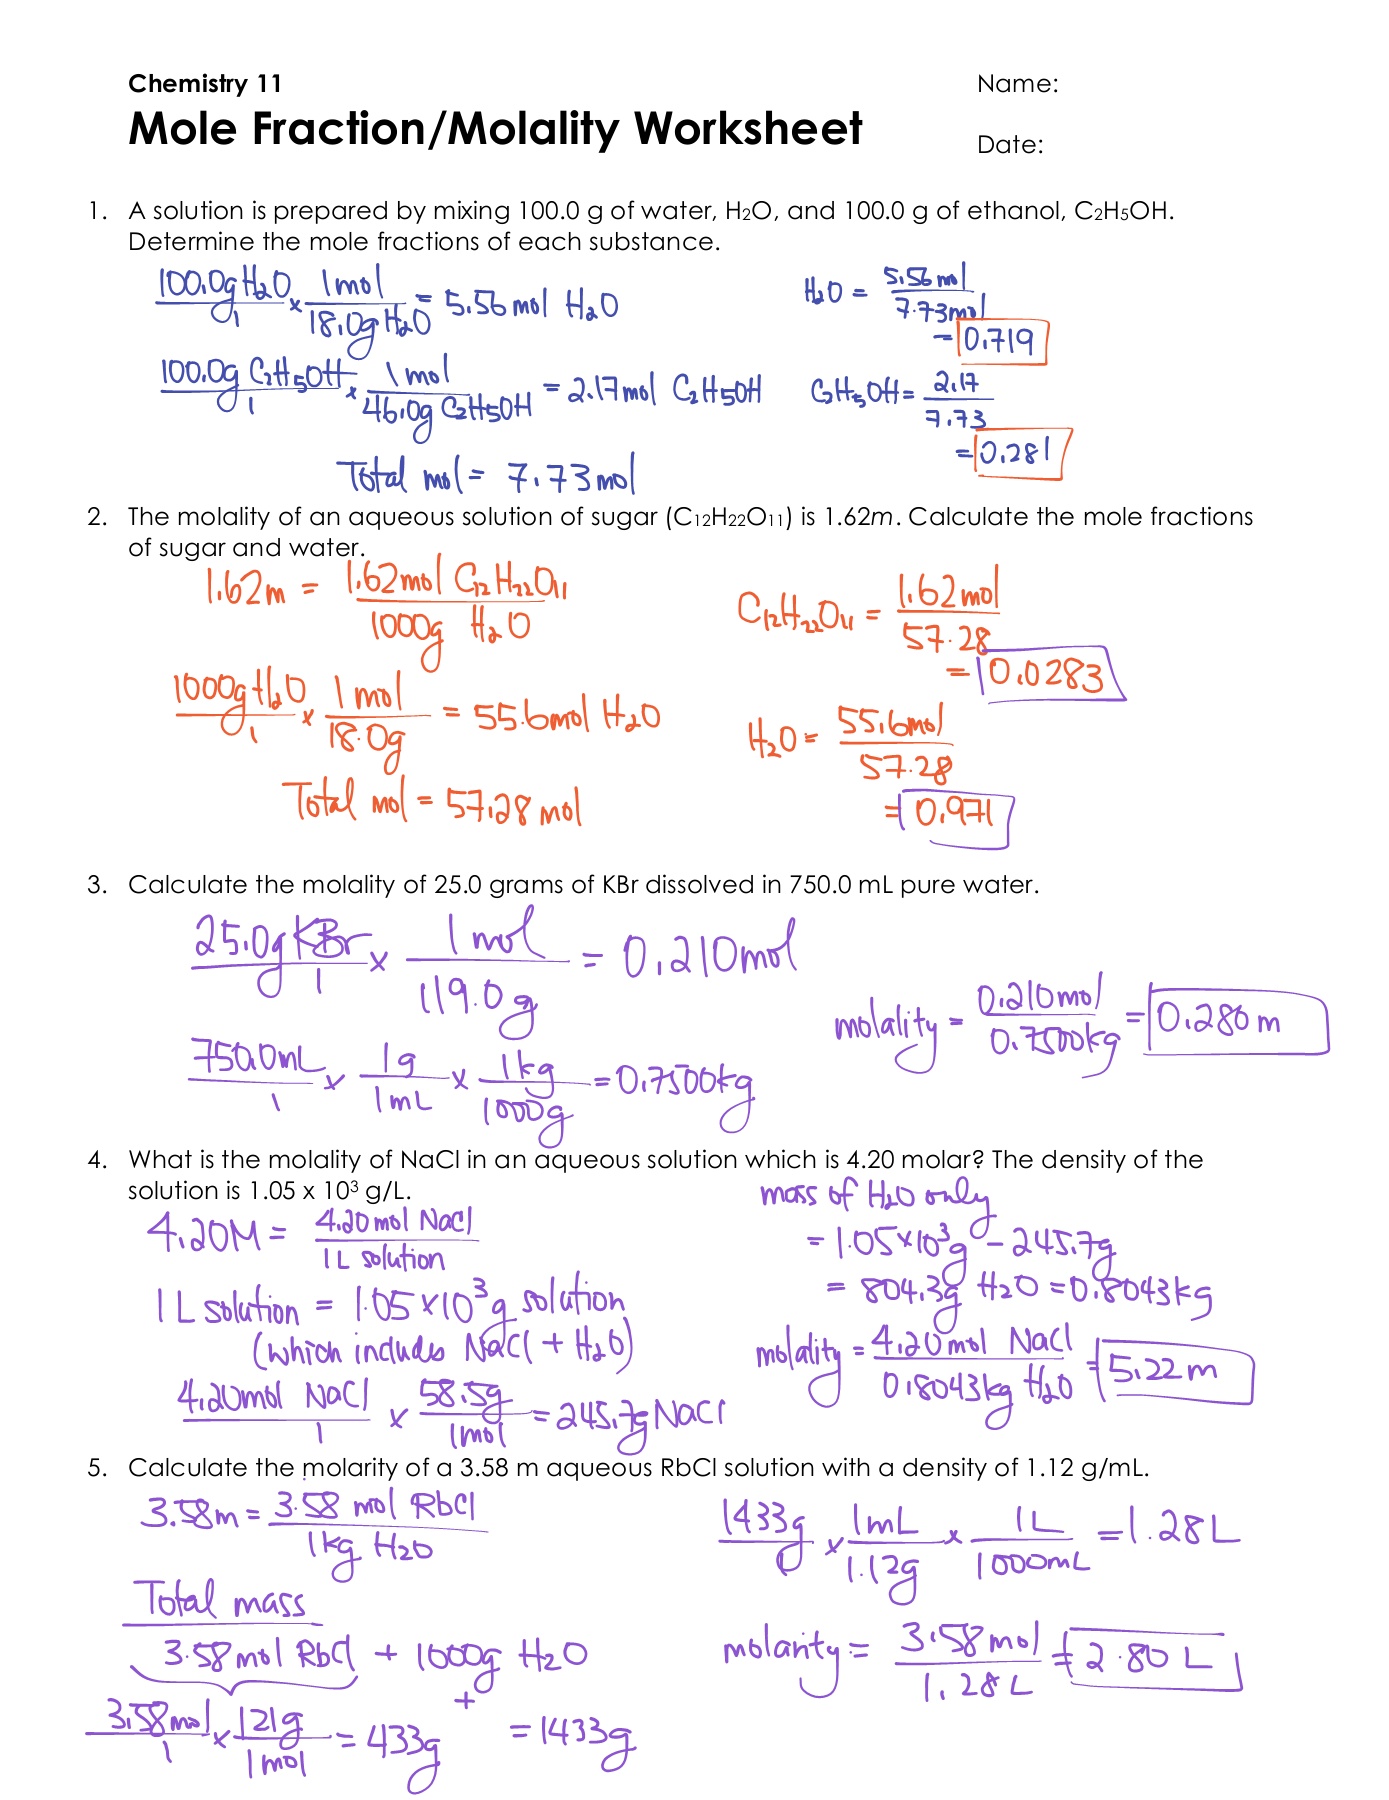 Chemistry 11
Name:
Mole Fraction/Molality Worksheet
Date:
1. A solution is prepared by mixing 100.0 g of water, H₂O, and 100.0 g of ethanol, C₂H₅OH.
Determine the mole fractions of each substance.
100.0g H₂O / 1 × 1 mol / 18.0g H₂O = 5.56 mol H₂O
H₂O = 5.56 mol / 7.73 mol
= 0.719
100.0g C₂H₅OH / 1 × 1 mol / 46.0g C₂H₅OH = 2.17 mol C₂H₅OH
C₂H₅OH = 2.17 / 7.73
= 0.281
Total mol = 7.73 mol
2. The molality of an aqueous solution of sugar (C₁₂H₂₂O₁₁) is 1.62m. Calculate the mole fractions
of sugar and water.
1.62m = 1.62 mol C₁₂H₂₂O₁₁ / 1000g H₂O
C₁₂H₂₂O₁₁ = 1.62 mol / 57.28
= 0.0283
1000g H₂O / 1 × 1 mol / 18.0g = 55.6 mol H₂O
H₂O = 55.6 mol / 57.28
= 0.971
Total mol = 57.28 mol
3. Calculate the molality of 25.0 grams of KBr dissolved in 750.0 mL pure water.
25.0g KBr / 1 × 1 mol / 119.0g = 0.210 mol
molality = 0.210 mol / 0.7500kg = 0.280 m
750.0mL / 1 × 1g / 1mL × 1kg / 1000g = 0.7500kg
4. What is the molality of NaCl in an aqueous solution which is 4.20 molar? The density of the
solution is 1.05 x 10³ g/L.
4.20M = 4.20 mol NaCl / 1L solution
1 L solution = 1.05×10³g solution
(which includes NaCl + H₂O)
4.20mol NaCl / 1 × 58.5g / 1mol = 245.7g NaCl
mass of H₂O only
= 1.05×10³g - 245.7g
= 804.3g H₂O = 0.8043kg
molality = 4.20 mol NaCl / 0.8043kg H₂O = 5.22 m
5. Calculate the molarity of a 3.58 m aqueous RbCl solution with a density of 1.12 g/mL.
3.58m = 3.58 mol RbCl / 1kg H₂O
Total mass
3.58 mol RbCl + 1000g H₂O
3.58mol / 1 × 121g / 1mol = 433g + = 1433g
1433g / 1 × 1mL / 1.12g × 1L / 1000mL = 1.28L
molarity = 3.58 mol / 1.28L = 2.80 L